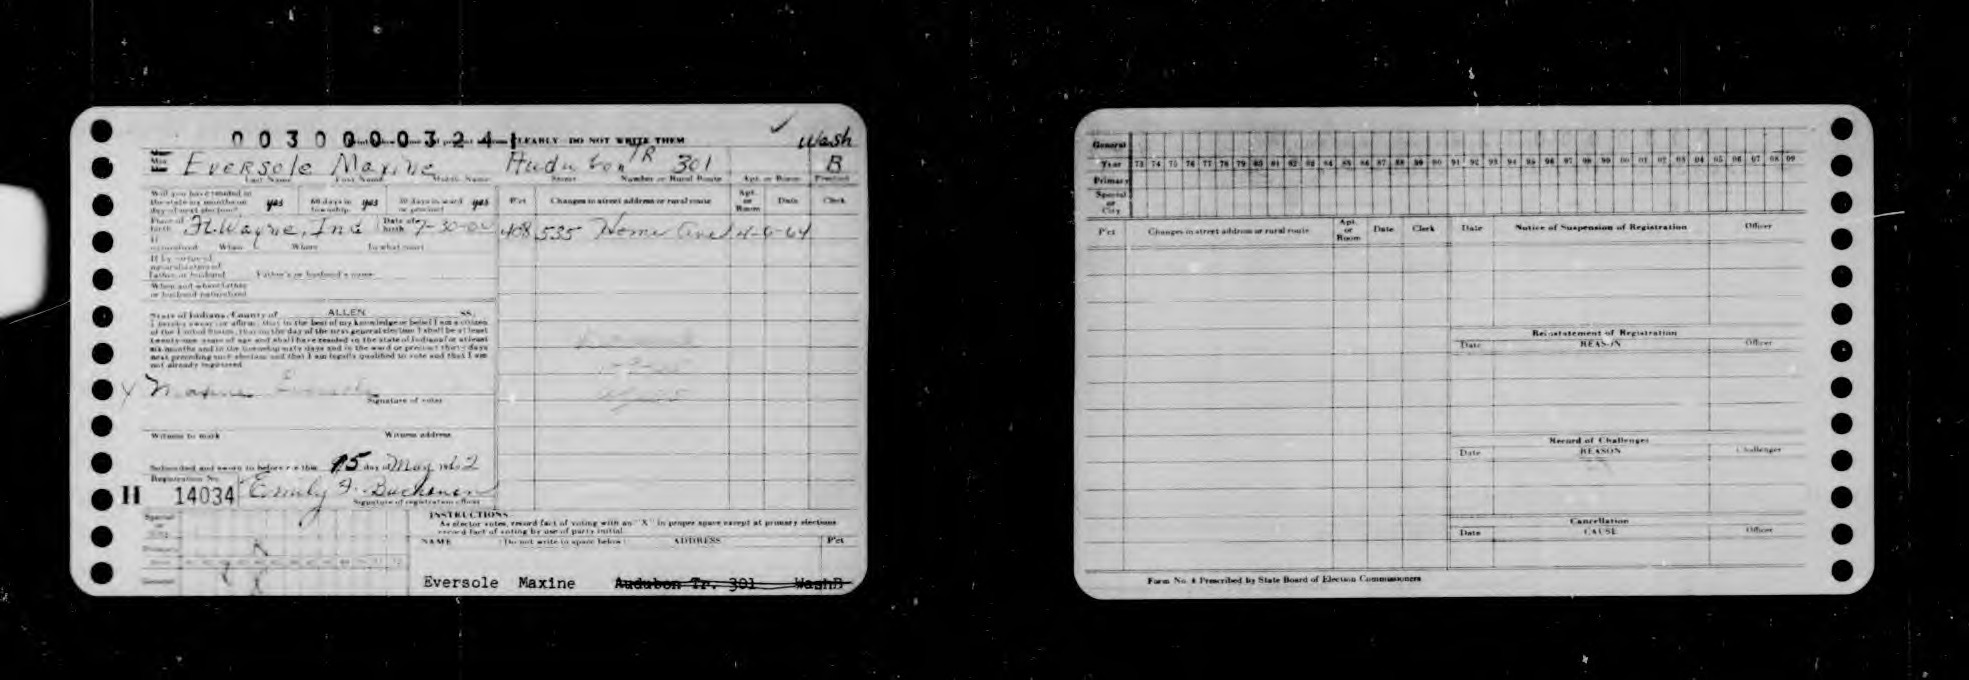 0030000324
CLEARLY DO NOT WRITE THEM
Wash
Eversole Maxine Audubon TR 301 B
Last Name First Name Middle Name Street Number or Rural Route Apt. or Room Precinct
Will you have resided in
the state six months on yes 60 days in yes 30 days in ward yes
day of next election? township or precinct
P'ct Changes in street address or rural route Apt. or Room Date Clerk
Place of birth Ft. Wayne, Ind Date of birth 7-30-
408 535 Home Ave 4-6-64
If naturalized When Where In what court
If by virtue of
naturalization of
father or husband Father's or husband's name
When and where father
or husband naturalized
State of Indiana, County of ALLEN ss.
I hereby swear or affirm, that to the best of my knowledge or belief I am a citizen
of the United States, that on the day of the next general election I shall be at least
twenty-one years of age and shall have resided in the state of Indiana for at least
six months and in the township sixty days and in the ward or precinct thirty days
next preceding such election and that I am legally qualified to vote and that I am
not already registered.
X Maxine Eversole
Signature of voter
Witness to mark Witness address
Subscribed and sworn to before me this 15 day of May 1962
Registration No.
H 14034 Emily F. Buchanan
Signature of registration officer
INSTRUCTIONS
As elector votes, record fact of voting with an "X" in proper space except at primary elections
record fact of voting by use of party initial.
Special
or
City
Primary
Year
General
NAME (Do not write in space below) ADDRESS P'ct
Eversole Maxine Audubon Tr. 301 WashB
General
Year 73 74 75 76 77 78 79 80 81 82 83 84 85 86 87 88 89 90 91 92 93 94 95 96 97 98 99 00 01 02 03 04 05 06 07 08 09
Primary
Special
or
City
P'ct Changes in street address or rural route Apt. or Room Date Clerk Date Notice of Suspension of Registration Officer
Reinstatement of Registration
Date REASON Officer
Record of Challenges
Date REASON Challenger
Cancellation
Date CAUSE Officer
Form No. 4 Prescribed by State Board of Election Commissioners